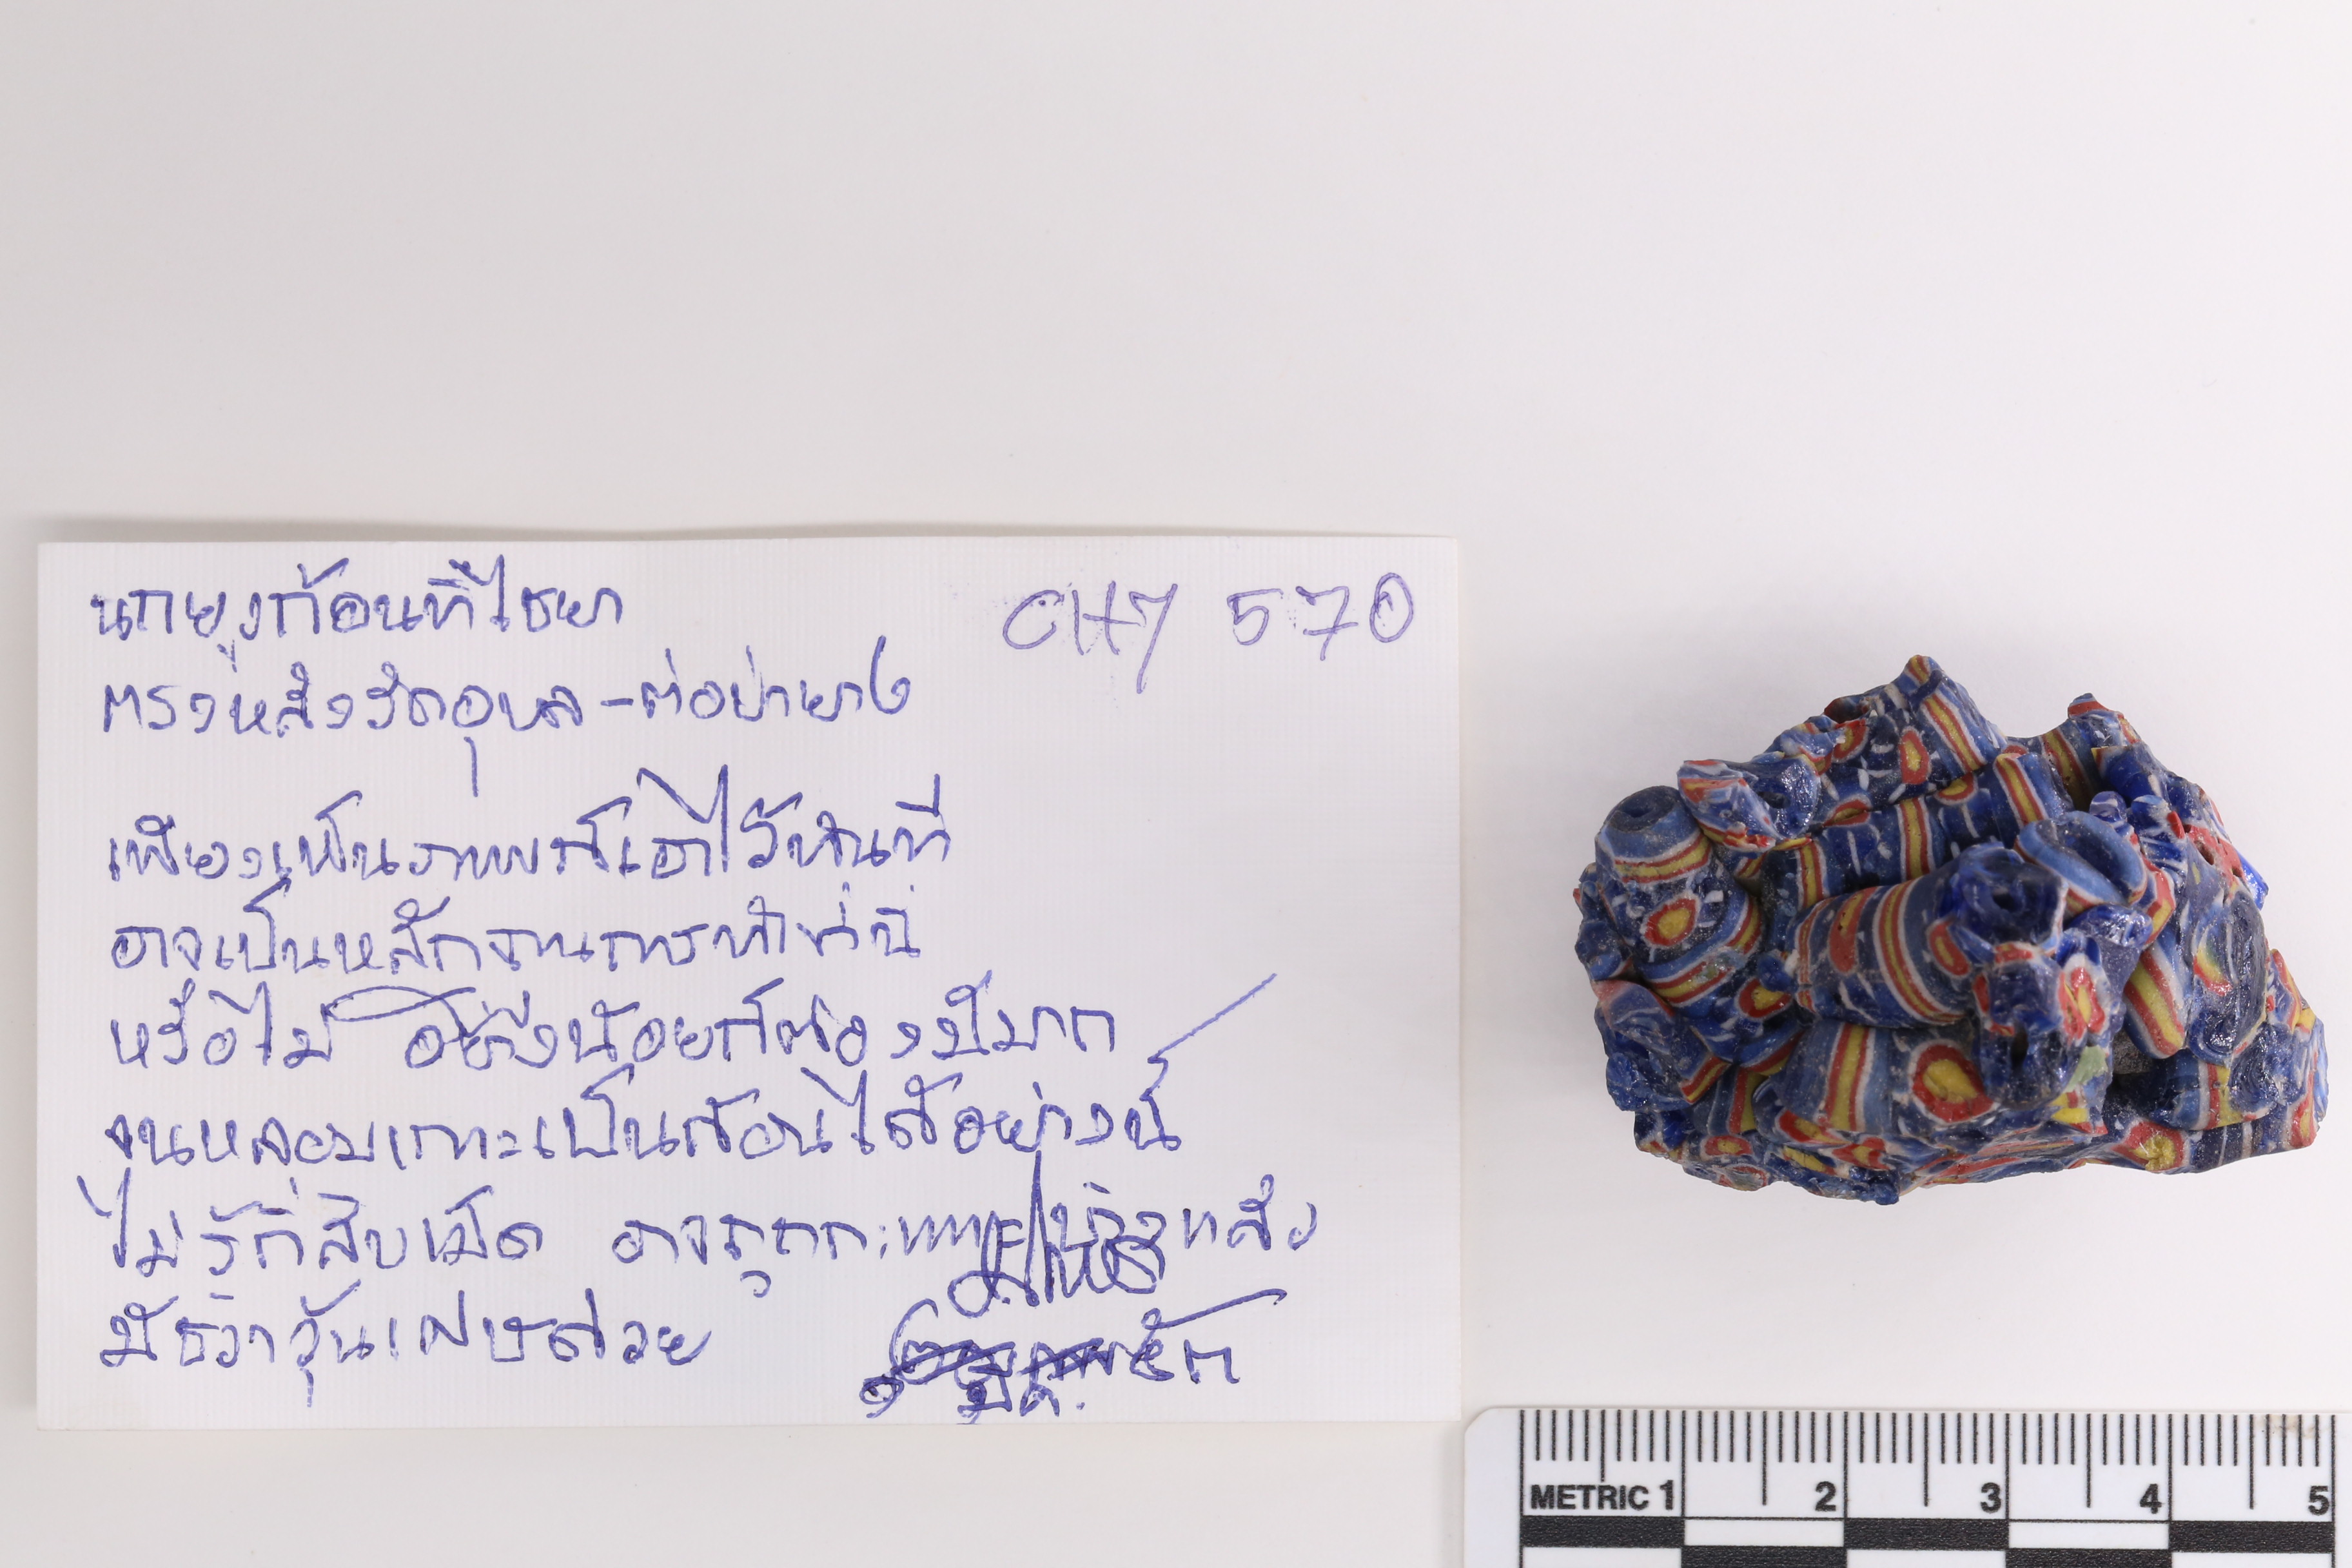 นกยูงก้อนที่ไชยา
CHY 570
ตรงหลังวัดอุบล-ต่อป่ายาง
เพียงเห็นภาพก็เอาไว้ทันที
อาจเป็นหลักฐานการทำที่นี่
หรือไม่ อย่างน้อยก็ต้องมีมาก
จนหลอมเกาะเป็นก้อนได้อย่างนี้
ไม่รู้กี่สิบเม็ด อาจถูกกะเทาะไปบ้างแล้ว
มีชิ้น
METRIC 1 2 3 4 5